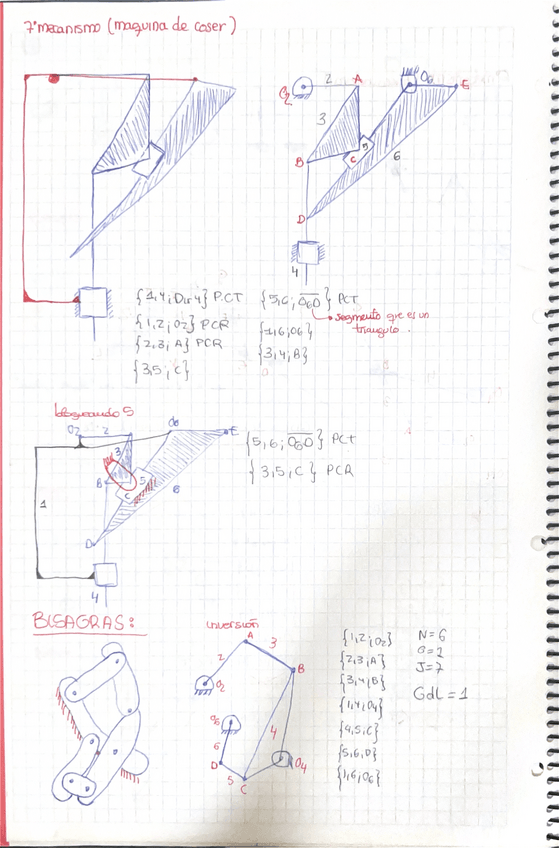 7º mecanismo (maquina de coser)
O2 2 A O6 E
3
B C 5 6
D
4
{1,4; Dir4} PCT {5,6; O6D} PCT
segmento que es un
triangulo.
{1,2; O2} PCR {1,6; O6}
{2,3; A} PCR {3,4; B}
{3,5; C}
bloqueando 5
O2 2 O6 E
3
B C 5 6
1
D
4
{5,6; O6D} PCT
{3,5; C} PCR
BISAGRAS:
inversión
A 3
2 B
O2
O6
6 4
D O4
5 C
{1,2; O2} N=6
{2,3; A}
{3,4; B} J=7
{1,4; O4} Gdl = 1
{4,5; C}
{5,6; D}
{1,6; O6}